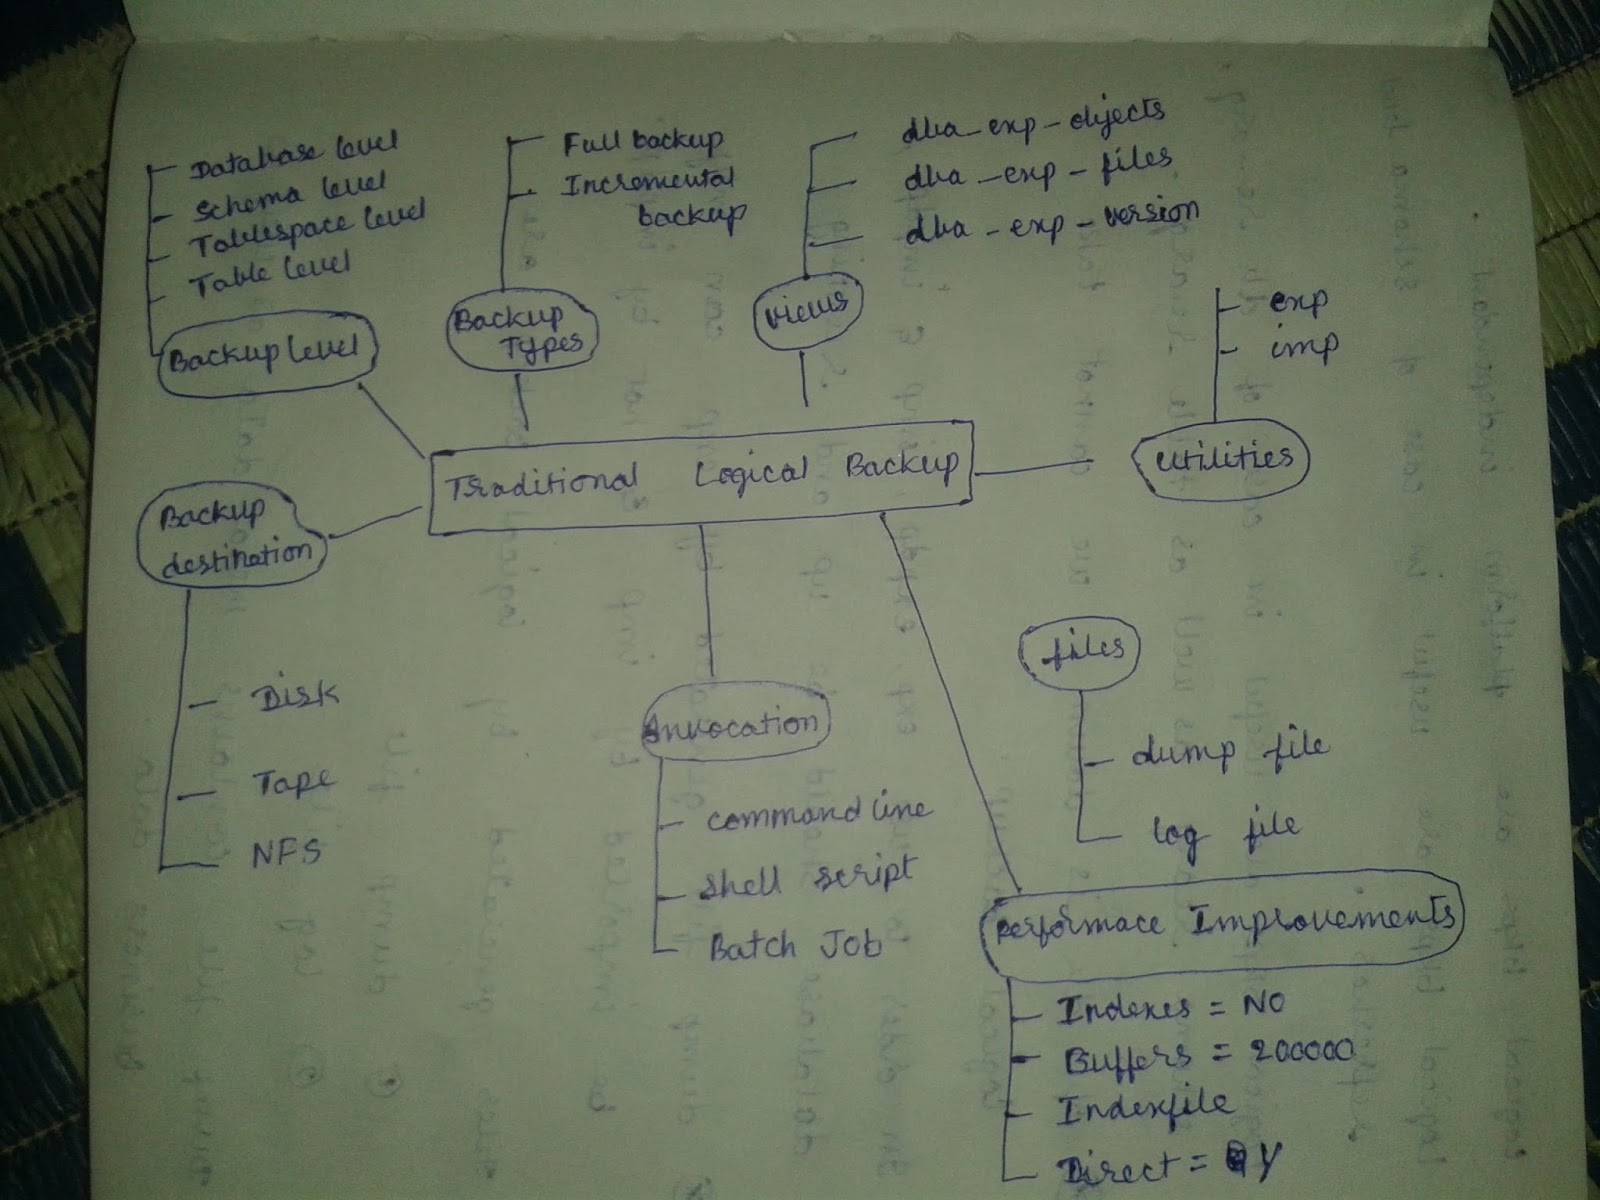 Database level
Schema level
Tablespace level
Table level
Backup level
Full backup
Incremental
backup
Backup
Types
dba_exp-objects
dba_exp-files
dba_exp-version
views
exp
imp
utilities
Traditional Logical Backup
Backup
destination
Disk
Tape
NFS
Invocation
command line
shell script
Batch Job
files
dump file
log file
Performace Improvements
Indexes = NO
Buffers = 200000
Indexfile
Direct = Y